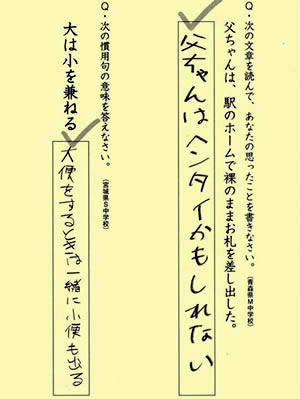 Q・次の文章を読んで、あなたの思ったことを書きなさい。(青森県M中学校)
父ちゃんは、駅のホームで裸のままお札を差し出した。
父ちゃんはヘンタイかもしれない
Q・次の慣用句の意味を答えなさい。(宮城県S中学校)
大は小を兼ねる
大便をするときは一緒に小便も出る